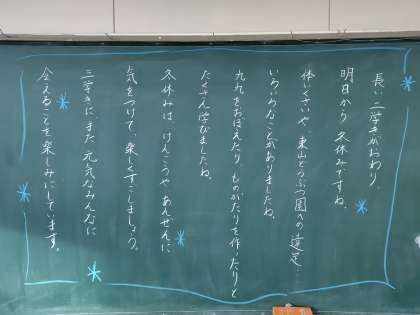 長い二学きがおわり、
明日から冬休みですね。
体いくさいや、東山どうぶつ園への遠足…
いろいろなことがありましたね。
九九をおぼえたり、ものがたりを作ったりと
たくさん学びましたね。
冬休みは、けんこうやあんぜんに
気をつけて、楽しくすごしましょう。
三学きに、また元気なみんなに
会えることを楽しみにしています。